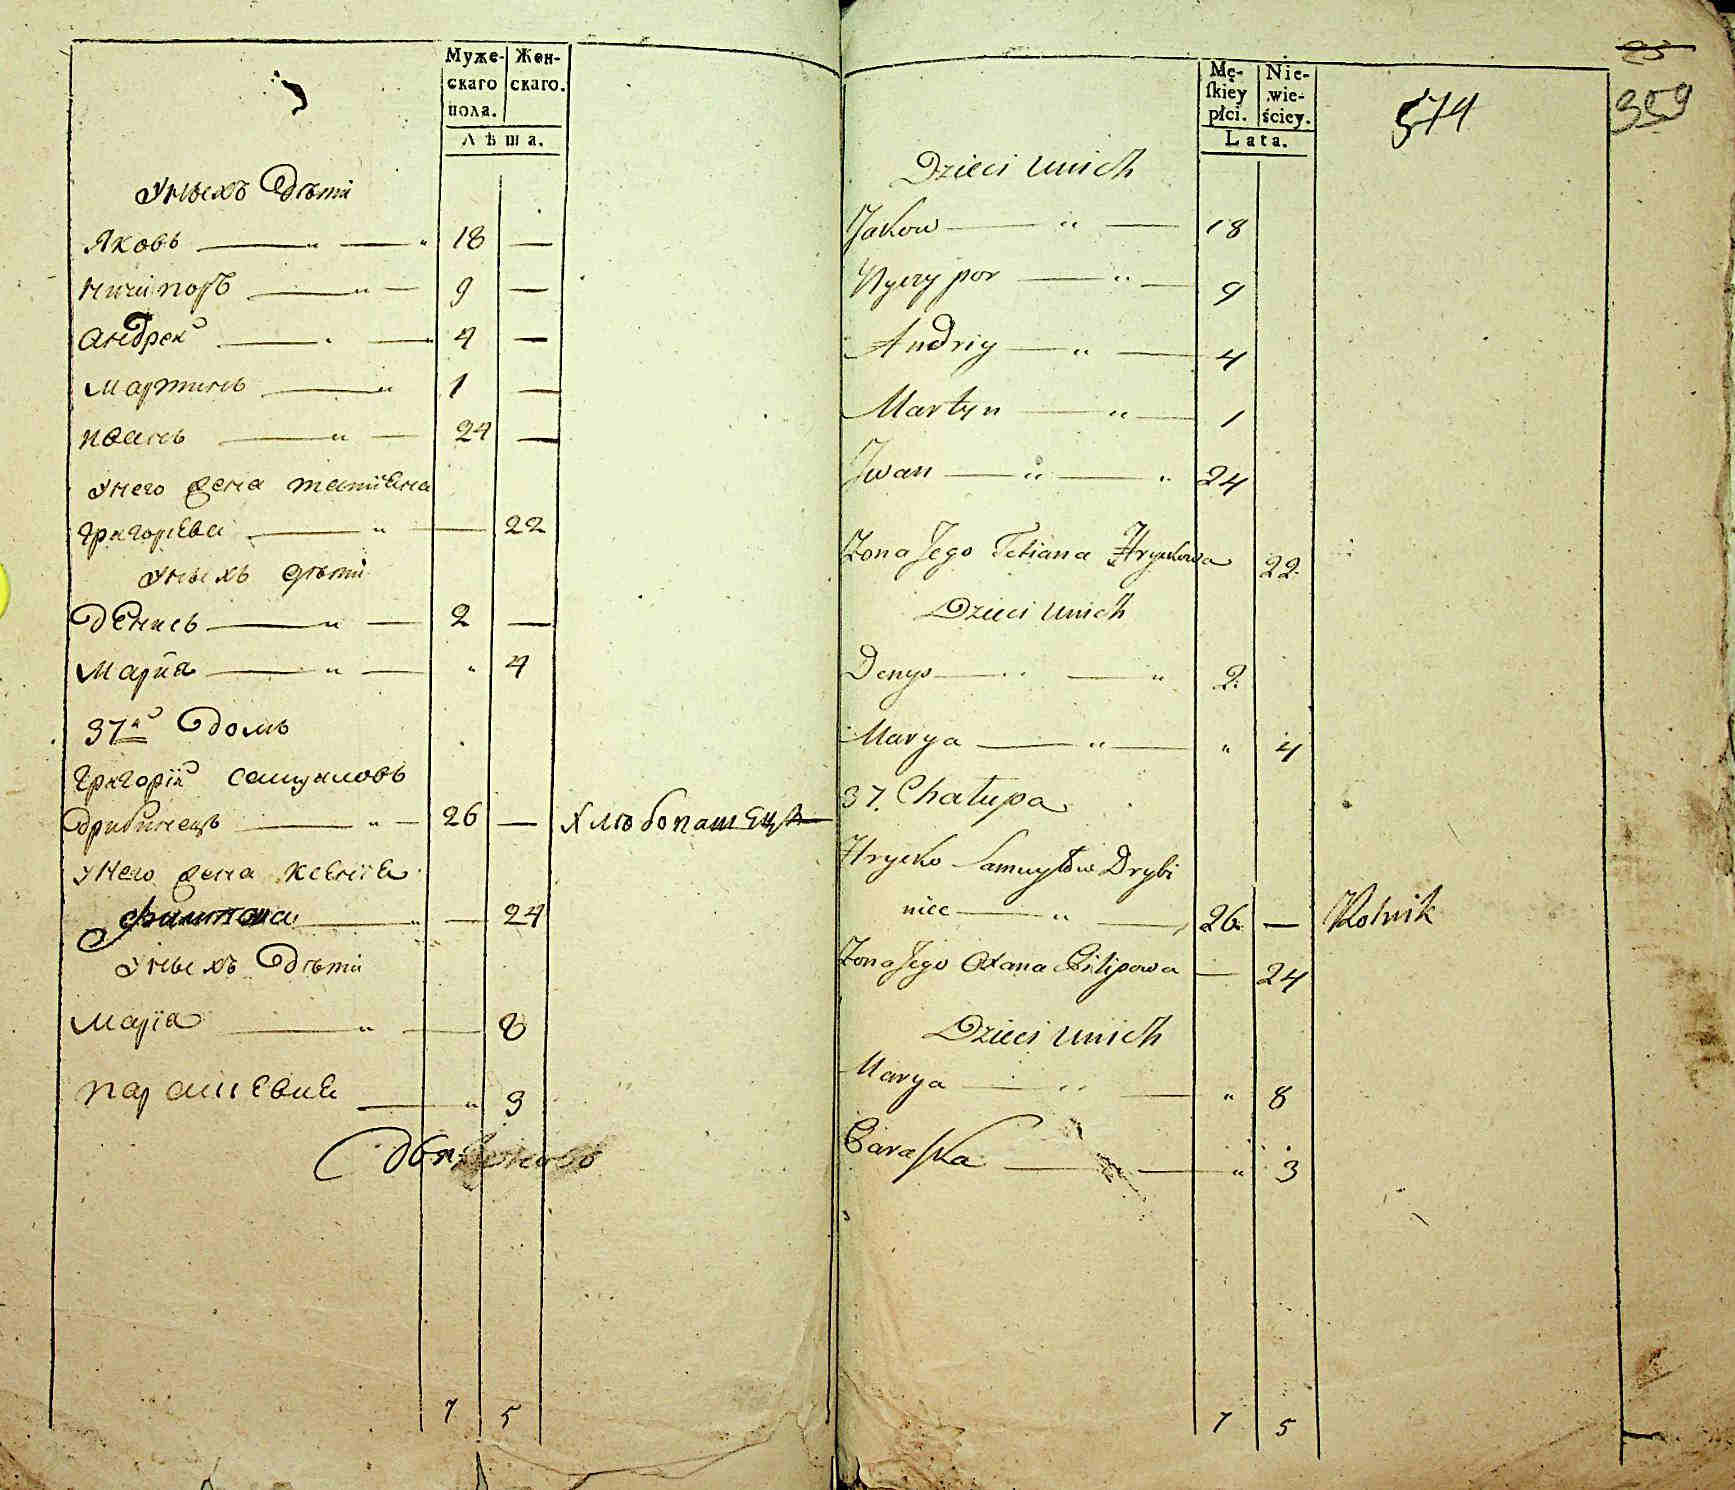 Муже- Жен-
скаго скаго.
пола.
Лѣта.
Унихъ Дѣти
Яковъ — „ — „ 18 —
Ничипоръ — „ — 9 —
Андрей — „ — 4 —
Мартинъ — „ 1 —
Иванъ — „ — 24 —
Унего жена татиѣна
Григорьева — „ — 22
Унихъ дѣти
Денисъ — „ — 2 —
Мария — „ — „ 4
37й Домъ
Григорій Самуиловъ
Дрибинецъ — „ — 26 — Хлѣбопашецъ
Унего жена Ксенія
Филипова — „ — 24
Унихъ Дѣти
Марія — „ — 8
Парасковия — „ 3
359
574
Mę- Nie-
skiey wie-
płci. ściey.
Lata.
Dzieci unich
Jakow — „ — 18
Nyczypor — „ — 9
Andriy — „ — 4
Martyn — „ — 1
Jwan — „ — „ 24
Zona Jego Tetiana Hryckowa 22
Dzieci unich
Denys — „ — „ 2.
Marya — „ — „ 4
37. Chałupa
Hrycko Samuyłow Drybi
niec — „ — 26. — Rolnik
Zona Jego Oxana Pilipowa — 24
Dzieci unich
Marya — „ — „ 8
Paraska — — „ 3
7 5
7 5